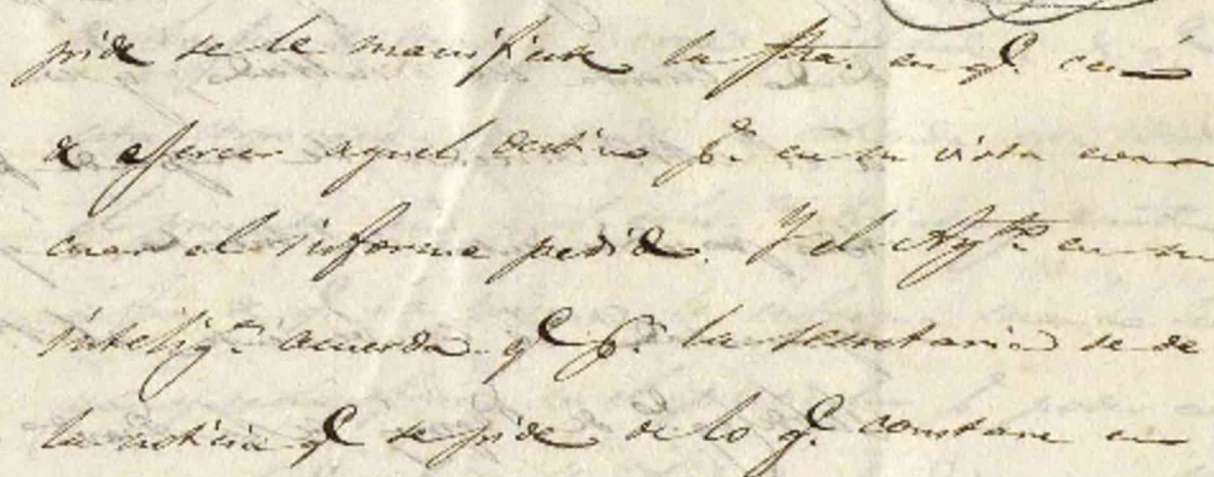 pide se le manifieste la fha. en q.e cesó
de ejercer aquel destino p.a en su vista evacuar
el informe pedido. Y el Ayto. en su
intelig.a acuerda q.e p.r la secretaria se de
la noticia q.e se pide de lo q.e constare en